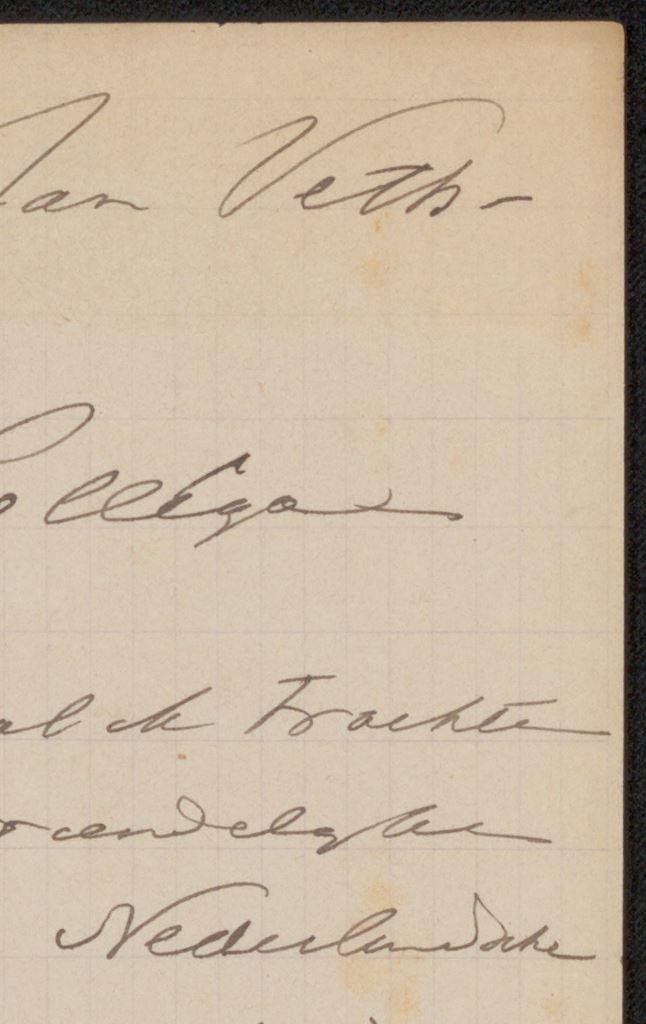 Jan Veth-
Collega
al ik Trachten
vriendelyke
Nederlandsche